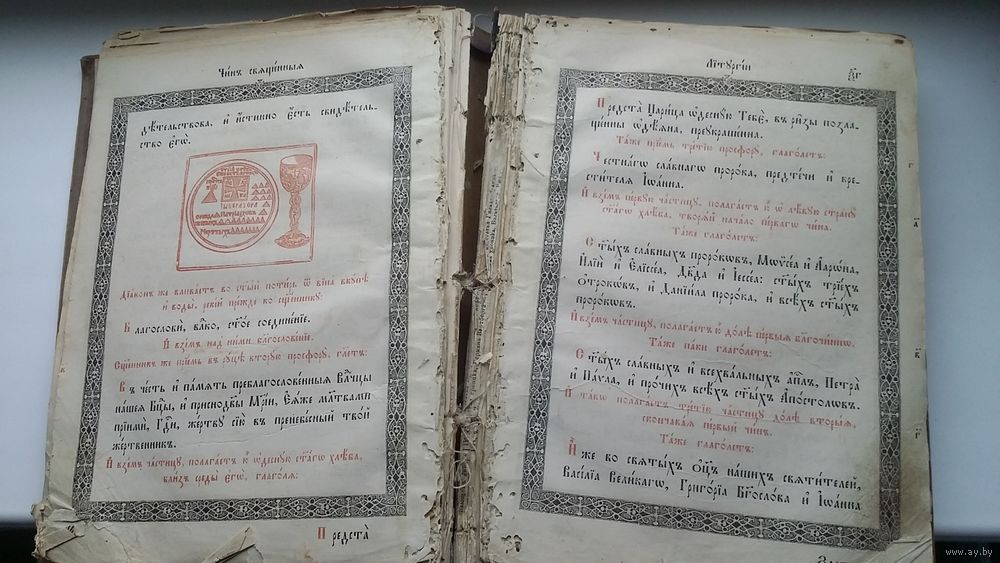 Чи́нъ свяще́нныѧ
дѣ́тельствова, и҆ и҆́стинно є҆́сть свидѣ́тель-
ство є҆гѡ̀.
Дїа́конъ же влива́етъ во ст҃ы́й поти́рь ѿ вїна̀ вкꙋ́пѣ
и҆ воды̀, реки́й пре́жде ко сщ҃е́нникꙋ:
Благословѝ, влⷣко, ст҃о́е соедине́нїе.
И҆ взе́мъ над ни́ми благослове́нїе.
Сщ҃е́нникъ же прїе́мъ въ рꙋ́цѣ вторꙋ́ю просфорꙋ̀, гл҃етъ:
Въ че́сть и҆ па́мѧть преблагослове́нныѧ влⷣчцы
на́шеѧ бцⷣы, и҆ приснодв҃ы мр҃і́и, є҆ѧ́же мл҃твами
прїимѝ, гдⷭ҇и, же́ртвꙋ сїю̀ въ пренебе́сный тво́й
же́ртвенникъ.
И҆ взе́мъ части́цꙋ, полага́етъ ю҆̀ ѡ҆деснꙋ́ю ст҃а́гѡ хлѣ́ба,
бли́зъ среды̀ є҆гѡ̀, глаго́лѧ:
Предста̀
Лїтꙋргі́и
Предста̀ Цари́ца ѡ҆деснꙋ́ю Тебє̀, въ ри́зы позла-
ще́нны ѡ҆дѣ́ѧна, преꙋкраше́нна.
Та́же прїе́мь тре́тїю просфорꙋ̀, глаго́летъ:
Честна́гѡ сла́внагѡ проро́ка, предте́чи и҆ кре-
сти́телѧ І҆ѡа́нна.
И҆ взе́мъ пе́рвꙋю части́цꙋ, полага́етъ ю҆̀ ѡ҆ лѣ́вꙋю странꙋ̀
ст҃а́гѡ хлѣ́ба, творѧ́й нача́ло пе́рвагѡ чи́на.
Та́же глаго́летъ:
Ст҃ы́хъ сла́вныхъ проро́кѡвъ, Мѡѷсе́а и҆ А҆арѡ́на,
И҆лїи̑ и҆ Є҆лїссе́а, Дв҃да и҆ І҆ессе́а: ст҃ы́хъ трїе́хъ
ѻ҆́трокѡвъ, и҆ Данїи́ла проро́ка, и҆ всѣ́хъ ст҃ы́хъ
проро́кѡвъ.
И҆ взе́мъ части́цꙋ, полага́етъ ю҆̀ до́лѣ пе́рвыѧ благочи́ннѡ.
Та́же па́ки глаго́летъ:
Ст҃ы́хъ сла́вныхъ и҆ всехва́льныхъ а҆пⷭ҇лъ, Петра̀
и҆ Па́ѵла, и҆ про́чихъ всѣ́хъ ст҃ы́хъ А҆по́столѡвъ.
И҆ та́кѡ полага́етъ тре́тїю части́цꙋ до́лѣ вторы́ѧ,
сконча́ваѧ пе́рвый чи́нъ.
Та́же глаго́летъ:
И҆̀же во свѧты́хъ ѻ҆ц҃ъ на́шихъ свѧти́телей,
Васі́лїа Вели́кагѡ, Григо́рїа Бг҃осло́ва и҆ І҆ѡа́нна
www.ay.by